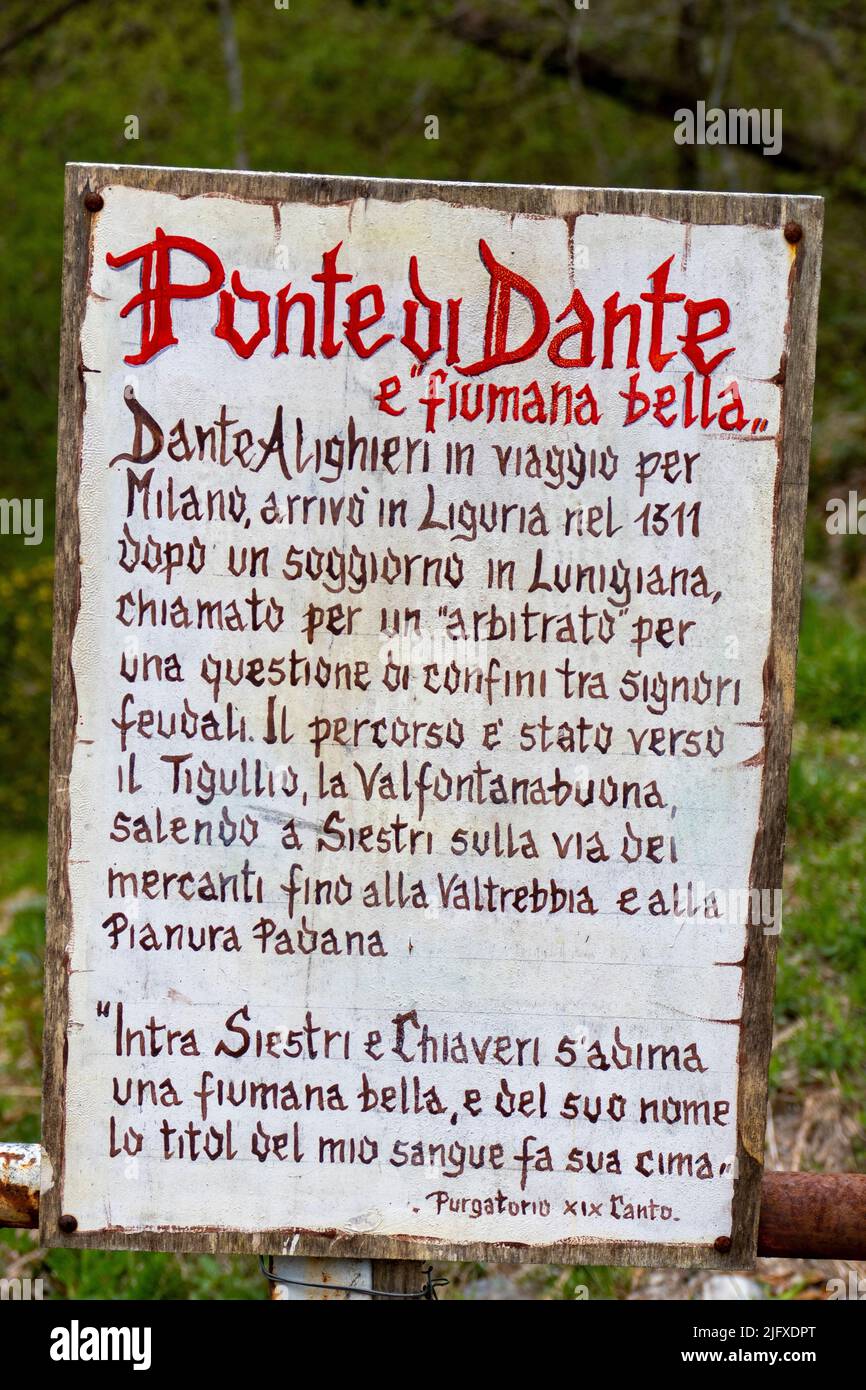 Ponte di Dante
e "fiumana bella„
Dante Alighieri in viaggio per
Milano, arrivò in Liguria nel 1311
dopo un soggiorno in Lunigiana,
chiamato per un "arbitrato" per
una questione di confini tra signori
feudali. Il percorso è stato verso
il Tigullio, la Valfontanabuona,
salendo a Siestri sulla via dei
mercanti fino alla Valtrebbia e alla
Pianura Padana
"Intra Siestri e Chiaveri s'adima
una fiumana bella, e del suo nome
lo titol del mio sangue fa sua cima„
Purgatorio XIX Canto.
a
alamy
Image ID: 2JFXDPT
www.alamy.com